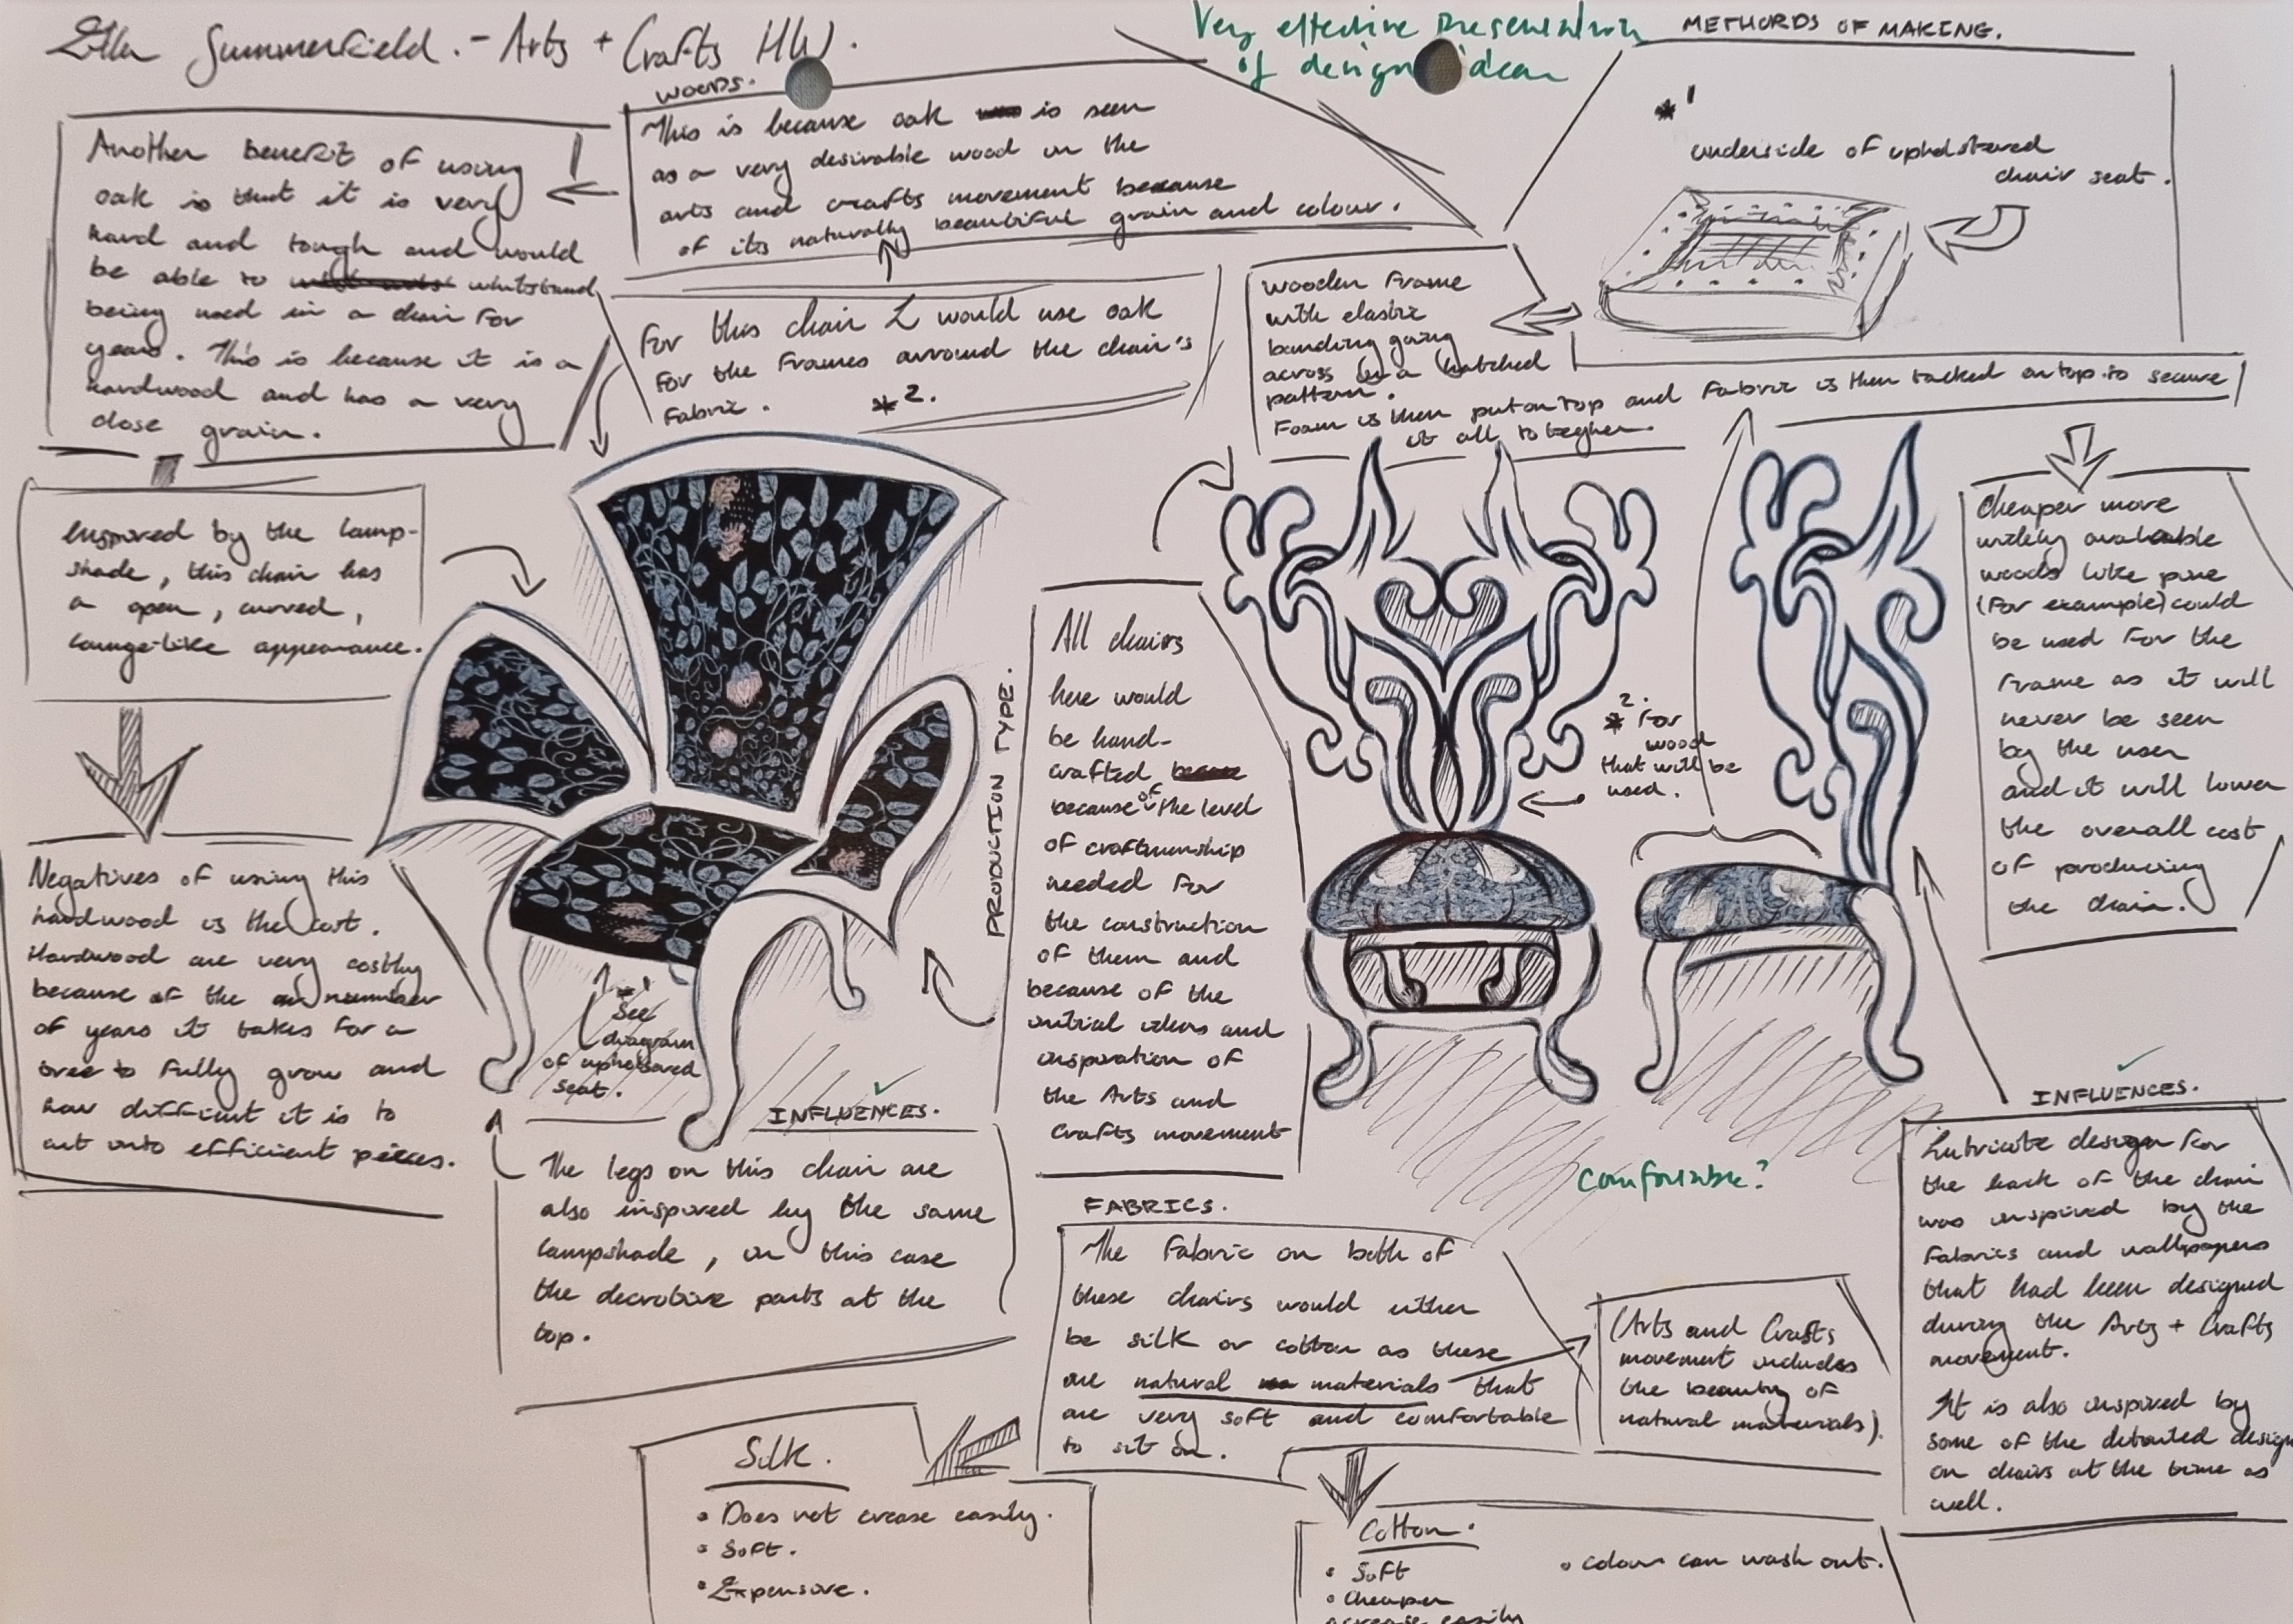 Ella Summerfield. - Arts + Crafts HW.
Very effective presentation
of design idea
WOODS.
This is because oak is seen
as a very desirable wood in the
arts and crafts movement because
of its naturally beautiful grain and colour.
Another benefit of using
oak is that it is very
hard and tough and would
be able to whitstand
being used in a chair for
years. This is because it is a
hardwood and has a very
close grain.
For this chair I would use oak
for the frames arround the chair's
fabric. *2.
Inspired by the lamp-
shade, this chair has
a open, curved,
lounge-like appearance.
Negatives of using this
hardwood is the cost.
Hardwood are very costly
because of the number
of years it takes for a
tree to fully grow and
how difficult it is to
cut into efficient pieces.
*1 See
diagram
of upholstered
seat.
INFLUENCES.
The legs on this chair are
also inspired by the same
lampshade, in this case
the decrotive parts at the
top.
METHORDS OF MAKING.
*1
underside of upholstered
chair seat.
wooden frame
with elastic
banding going
across in a hatched
pattern.
Foam is then put on top and fabric is then tacked on top to secure
it all togther.
cheaper more
widely available
woods like pine
(for example) could
be used for the
frame as it will
never be seen
by the user
and it will lower
the overall cost
of producing
the chair.
PRODUCTION TYPE.
All chairs
here would
be hand-
crafted
because of the level
of craftmenship
needed for
the construction
of them and
because of the
initial ideas and
inspiration of
the Arts and
Crafts movement
*2. For
wood
that will be
used.
comfortable?
INFLUENCES.
Intricate design for
the back of the chair
was inspired by the
fabrics and wallpapers
that had been designed
during the Arts + Crafts
movement.
It is also inspired by
some of the detailed design
on chairs at the time as
well.
FABRICS.
The fabric on both of
these chairs would either
be silk or cotton as these
are natural materials that
are very soft and comfortable
to sit on.
(Arts and Crafts
movement includes
the beauty of
natural materials).
Silk.
• Does not crease easily.
• Soft.
• Expensive.
Cotton.
• Soft
• Cheaper
• colour can wash out.
crease easily